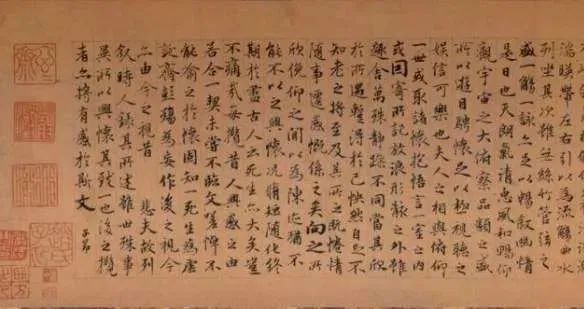 湍暎帶左右引以為流觴曲水
列坐其次雖無絲竹管弦之
盛一觴一詠亦足以暢敘幽情
是日也天朗氣清惠風和暢仰
觀宇宙之大俯察品類之盛
所以遊目騁懷足以極視聽之
娛信可樂也夫人之相與俯仰
一世或取諸懷抱悟言一室之內
或因寄所託放浪形骸之外雖
趣舍萬殊靜躁不同當其欣
於所遇蹔得於己怏然自足不
知老之將至及其所之既惓情
隨事遷感慨係之矣向之所
欣俛仰之閒以為陳迹猶不
能不以之興懷況脩短隨化終
期於盡古人云死生亦大矣豈
不痛哉每攬昔人興感之由
若合一契未嘗不臨文嗟悼不
能喻之於懷固知一死生為虛
誕齊彭殤為妄作後之視今
亦由今之視昔 悲夫故列
敘時人錄其所述雖世殊事
異所以興懷其致一也後之攬
者亦將有感於斯文
子昂